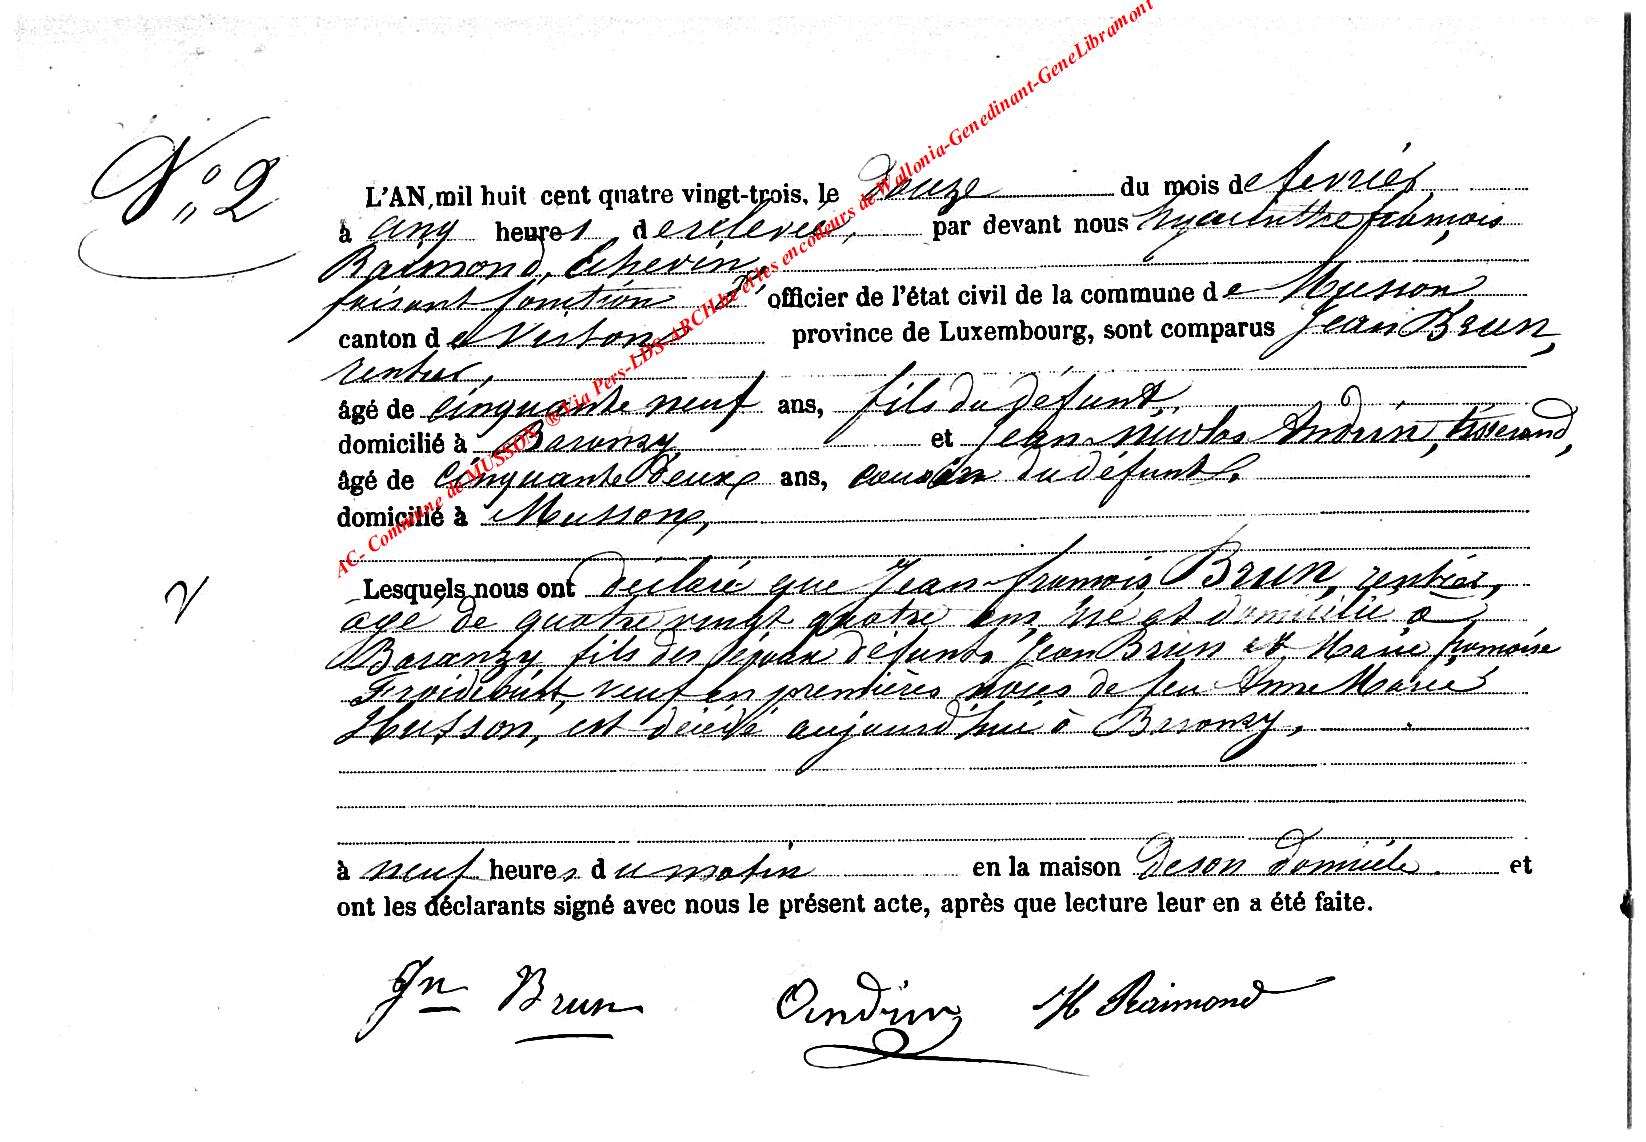 AC- Commune de MUSSON ®Via Pers-LDS-ARCH.be et les encodeurs de Wallonia-Genedinant-GeneLibramont
No 2
L'AN, mil huit cent quatre vingt-trois, le douze du mois de fevrier
à cinq heures de relevée, par devant nous hyacinthe françois
Raimond, Echevin,
faisant fonction d' officier de l'état civil de la commune de Musson
canton de Virton province de Luxembourg, sont comparus Jean Brun,
rentier,
âgé de cinquante neuf ans, fils du défunt,
domicilié à Baranzy et Jean Nicolas Andrin, tisserand,
âgé de cinquante deux ans, cousin du défunt,
domicilié à Musson,
Lesquels nous ont déclaré que Jean françois Brun, rentier,
âgé de quatre vingt quatre ans, né et domicilié à
Baranzy, fils des époux défunts Jean Brun et Marie françoise
veuf en premières noces de feu Anne Marie
Husson, est décédé aujourd'hui à Baranzy,
à neuf heures du matin en la maison de son domicile. et
ont les déclarants signé avec nous le présent acte, après que lecture leur en a été faite.
Jn Brun Andrin H Raimond